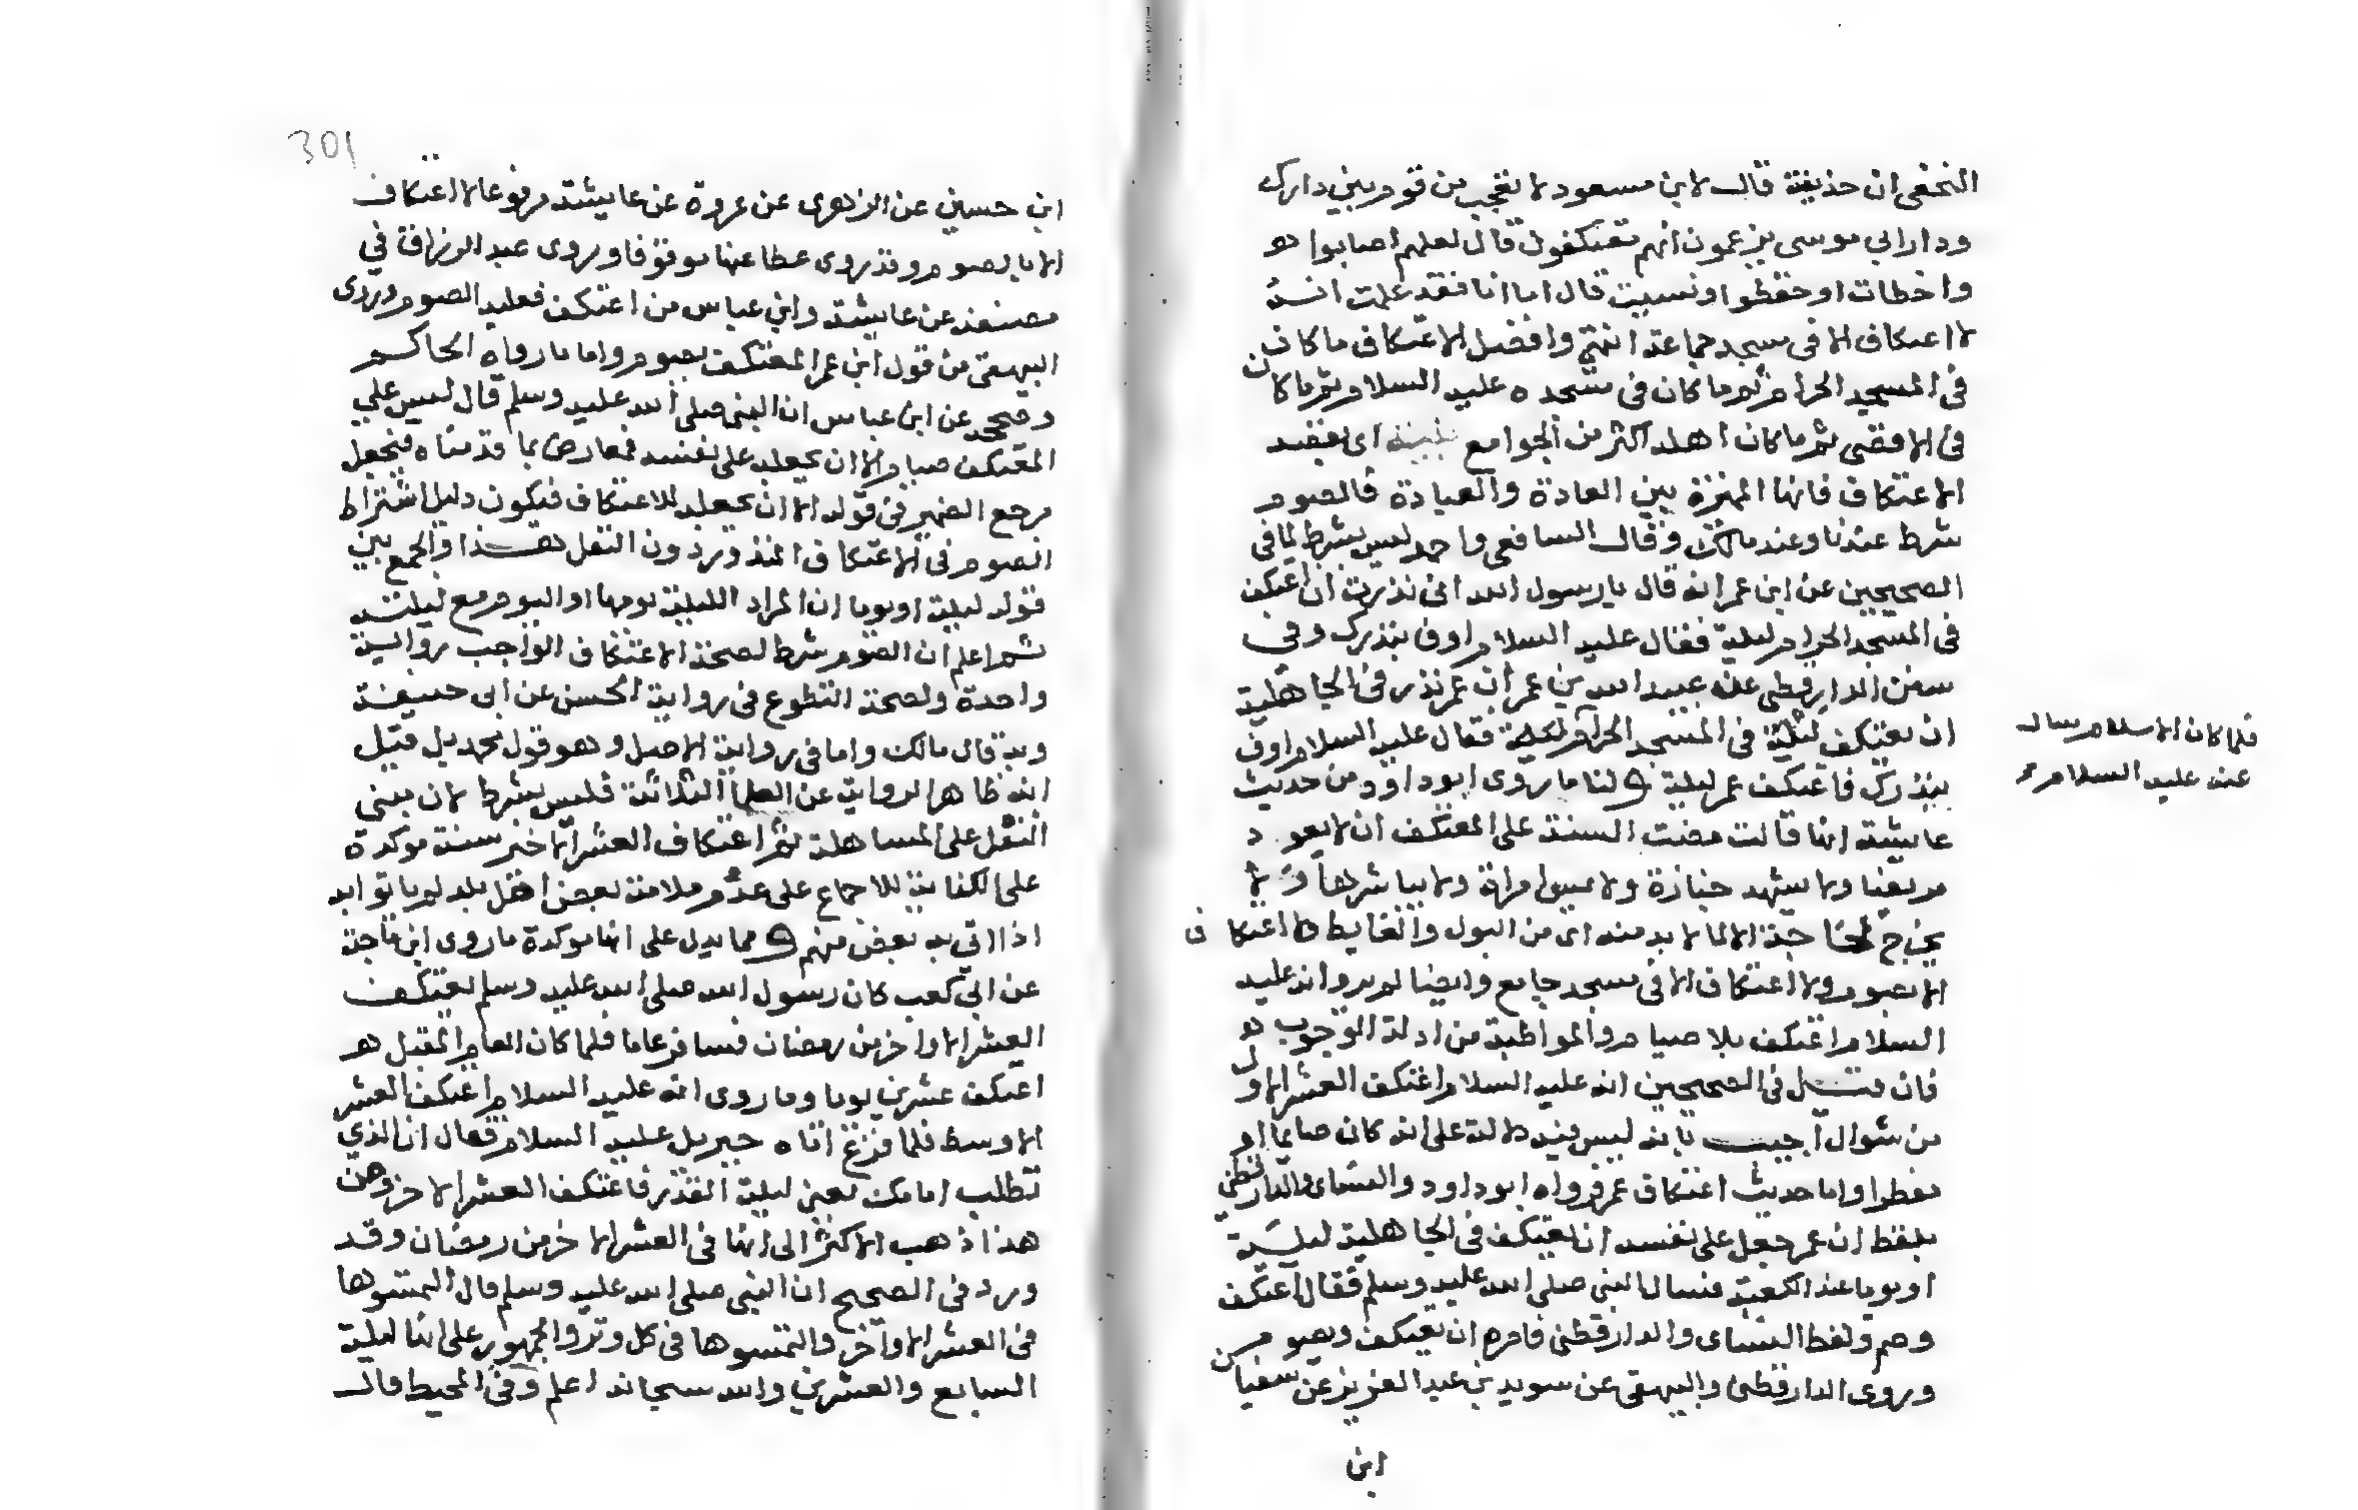 النخعي ان حذيفة قال لابن مسعود لا تعجب من قوم بين دارك
ودار ابي موسى يزعمون انهم معتكفون قال لعلهم اصابوا
واخطات او حفظوا ونسيت قال اما انا فقد علمت انه
لا اعتكاف الا في مسجد جماعة انتهى وافضل الاعتكاف ما كان
في المسجد الحرام ثم ما كان في مسجده عليه السلام ثم ما كان
في الاقصى ثم ما كان اهله اكثر من الجوامع بنية اي بقصد
الاعتكاف فانها المميزة بين العادة والعبادة فالصوم
شرط عندنا وعند مالك وقال الشافعي واحمد ليس بشرط لما في
الصحيحين عن ابن عمر انه قال يا رسول الله اني نذرت ان اعتكف
في المسجد الحرام ليلة فقال عليه السلام اوف بنذرك وفي
سنن الدارقطني عن عبيد الله بن عمر ان عمر نذر في الجاهلية
ان يعتكف ليلة في المسجد الحرام فقال عليه السلام اوف
فلما كان الاسلام سال
عنه عليه السلام
بنذرك فاعتكف عمر ليلة ولنا ما روى ابو داود من حديث
عايشة انها قالت مضت السنة على المعتكف ان لا يعود
مريضا ولا يشهد جنازة ولا يمس امراة ولا يباشرها ولا
يخرج لحاجة الا لما لا بد منه اي من البول والغايط ولا اعتكاف
الا بصوم ولا اعتكاف الا في مسجد جامع وايضا لم يرو انه عليه
السلام اعتكف بلا صيام والمواظبة من ادلة الوجوب
فان قيل في الصحيحين انه عليه السلام اعتكف العشر الاول
من شوال اجيب بانه ليس فيه دلالة على انه كان صايما ام
مفطرا واما حديث اعتكاف عمر فرواه ابو داود والنساي والدارقطني
بلفظ ان عمر جعل على نفسه ان يعتكف في الجاهلية ليلة
او يوما عند الكعبة فسال النبي صلى الله عليه وسلم فقال اعتكف
وصم ولفظ النساي والدارقطني فامره ان يعتكف ويصوم
وروى الدارقطني والبيهقي عن سويد بن عبد العزيز عن سفيان
ابن
301
ابن حسين عن الزهري عن عروة عن عايشة مرفوعا لا اعتكاف
الا بالصوم وقد روى عطا عنها موقوفا وروى عبد الرزاق في
مصنفه عن عايشة وابن عباس من اعتكف فعليه الصوم وروى
البيهقي من قول ابن عمر المعتكف يصوم واما ما رواه الحاكم
وصححه عن ابن عباس ان النبي صلى الله عليه وسلم قال ليس على
المعتكف صيام الا ان يجعله على نفسه فمعارض بما قدمناه فيجعل
مرجع الضمير في قوله الا ان يجعله للاعتكاف فيكون دليل اشتراط
الصوم في الاعتكاف المنذور دون النفل هذا والجمع بين
قوله ليلة او يوما ان المراد الليلة بيومها او اليوم مع ليلته
ثم اعلم ان الصوم شرط لصحة الاعتكاف الواجب رواية
واحدة ولصحة التطوع في رواية الحسن عن ابي حنيفة
وبه قال مالك واما في رواية الاصل وهو قول محمد بل قيل
انه ظاهر الرواية عن العلما الثلاثة فليس بشرط لان مبنى
النفل على المساهلة ثم اعتكاف العشر الاخير سنة موكدة
على الكفاية للاجماع على عدم ملامة بعض اهل بلد لم ياتوا به
اذا اتى به بعض منهم ومما يدل على انها موكدة ما روى ابن ماجة
عن ابي كعب كان رسول الله صلى الله عليه وسلم يعتكف
العشر الاواخر من رمضان فسافر عاما فلما كان العام المقبل
اعتكف عشرين يوما وما روى انه عليه السلام اعتكف العشر
الاوسط فلما فرغ اتاه جبريل عليه السلام فقال ان الذي
تطلب امامك يعني ليلة القدر فاعتكف العشر الاخر ومن
هذا ذهب الاكثر الى انها في العشر الاخر من رمضان وقد
ورد في الصحيح ان النبي صلى الله عليه وسلم قال التمسوها
في العشر الاواخر والتمسوها في كل وتر والجمهور على انها ليلة
السابع والعشرين والله سبحانه اعلم وفي المحيط قال